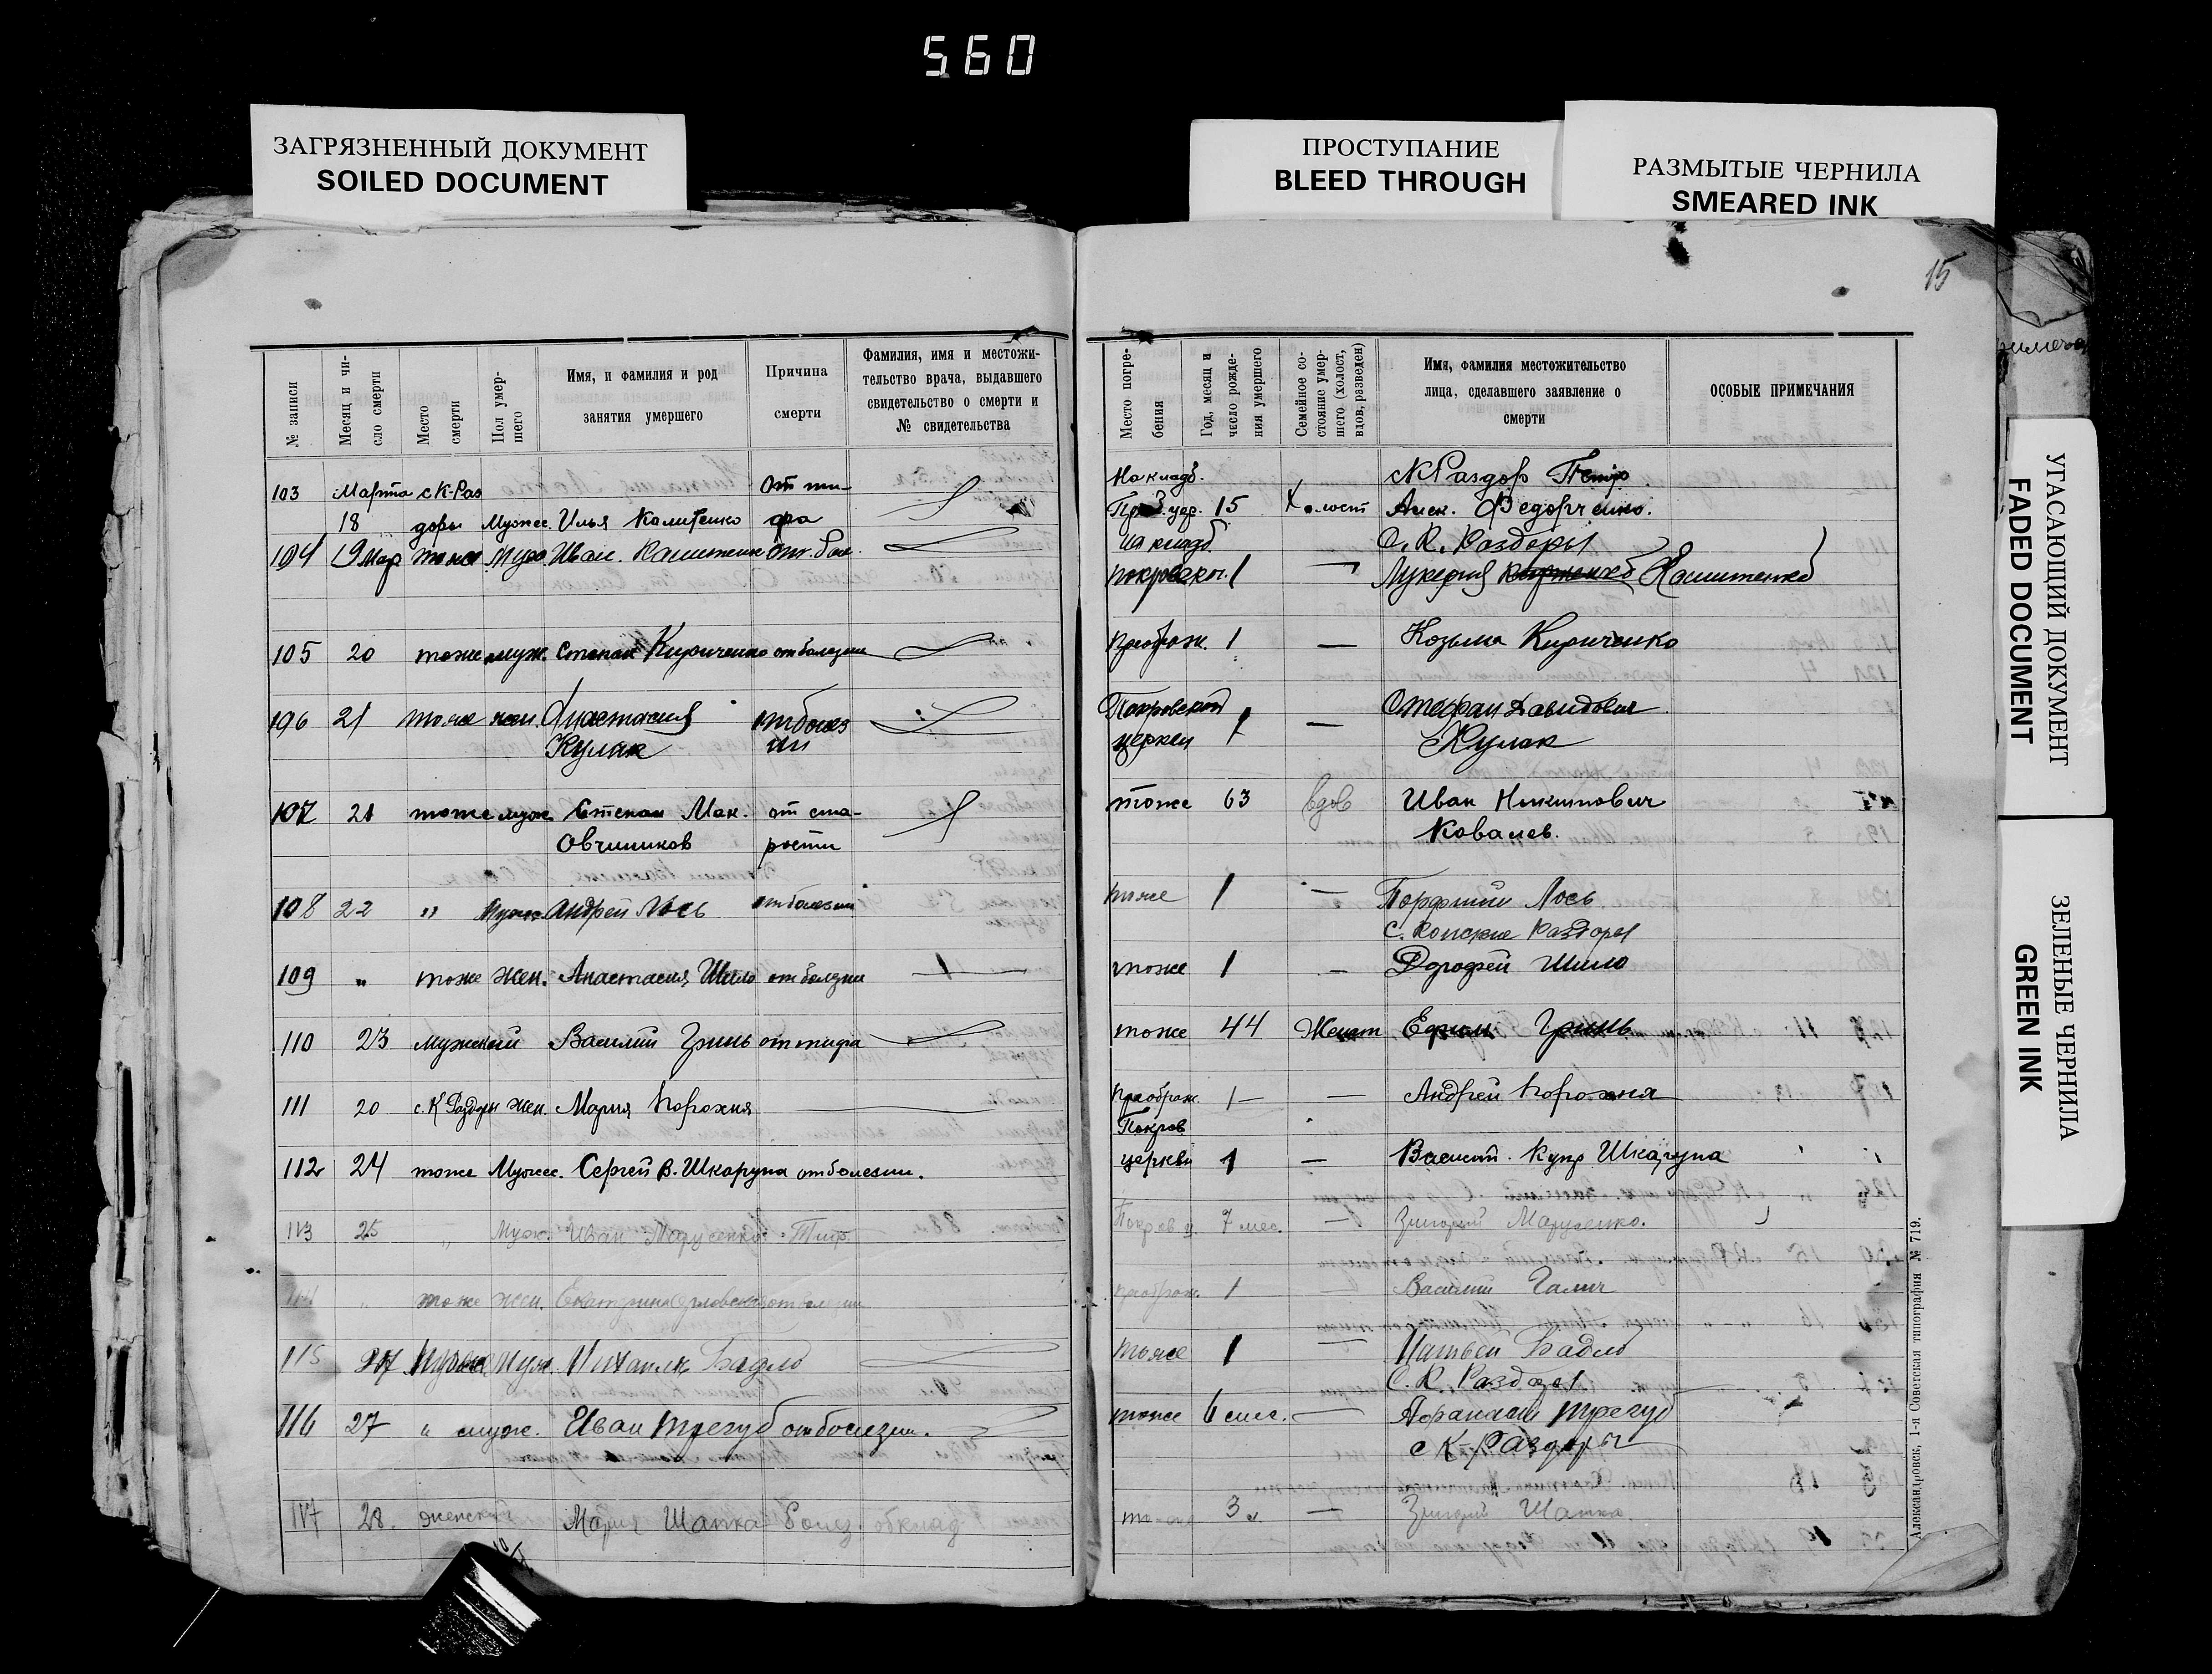 560
ЗАГРЯЗНЕННЫЙ ДОКУМЕНТ
SOILED DOCUMENT
ПРОСТУПАНИЕ
BLEED THROUGH
РАЗМЫТЫЕ ЧЕРНИЛА
SMEARED INK
15
№ записи
Месяц и чи-
сло смерти
Место
смерти
Пол умер-
шего
Имя, и фамилия и род
занятия умершего
Причина
смерти
Фамилия, имя и местожи-
тельство врача, выдавшего
свидетельство о смерти и
№ свидетельства
Место погре-
бения
Год, месяц и
число рожде-
ния умершего
Семейное со-
стояние умер-
шего (холост,
вдов, разведен)
Имя, фамилия местожительство
лица, сделавшего заявление о
смерти
ОСОБЫЕ ПРИМЕЧАНИЯ
103 Марта с К-Раз От ти-
18 доры Мужес. Илья фа
104 19 Мар тоже Муж Иван
105 20 тоже муж. Степан Кириченко от болезни
106 21 тоже жен. Анастасия от болез
Кулак ни
107 21 тоже муж Степан Мак. от ста-
Овчиников рости
108 22 " Муж Андрей Лось от болезни
109 " тоже жен. Анастасия Шило от болезни
110 23 мужской Василий Гринь от тифа
111 20 с. К Раздоры жен. Мария Порохня
112 24 тоже Мужес. Сергей В. Шкарупа от болезни.
113 25 " Муж. Иван Марусенко Тиф
114 " тоже жен. Екатерина от болезни
115 27 муж. Бадло
116 27 " муж. Иван Трегуб от болезни.
117 28. женский Мария Шапка Болез.
На кладб. Раздор Петр
цер. 15 Холост Алек. Федорченко.
на кладб. С. К. Раздоры
1 — Лукерия
преображ. 1 — Козьма Кириченко
Покровской Стефан Давидович
церкви 1 — Кулак
тоже 63 вдов Иван Никитович
Ковалев.
тоже 1 — Порфирий Лось
с. Конские Раздоры
тоже 1 — Дорофей Шило
тоже 44 Женат Ефим Гринь
преображ. 1 — — Андрей Порохня
Покров
церкви 1 — Василий Купр Шкарупа
Покров ц. 7 мес. — Григорий Марусенко.
преображ. 1 — Василий Галич
тоже 1 — Бадло
С. К. Раздоры
тоже 6 мес. — Афанасий Трегуб
с К-Раздоры
тоже 3 — Григорий Шапка
Александровск, 1-я Советская типография № 719.
УГАСАЮЩИЙ ДОКУМЕНТ
FADED DOCUMENT
ЗЕЛЕНЫЕ ЧЕРНИЛА
GREEN INK